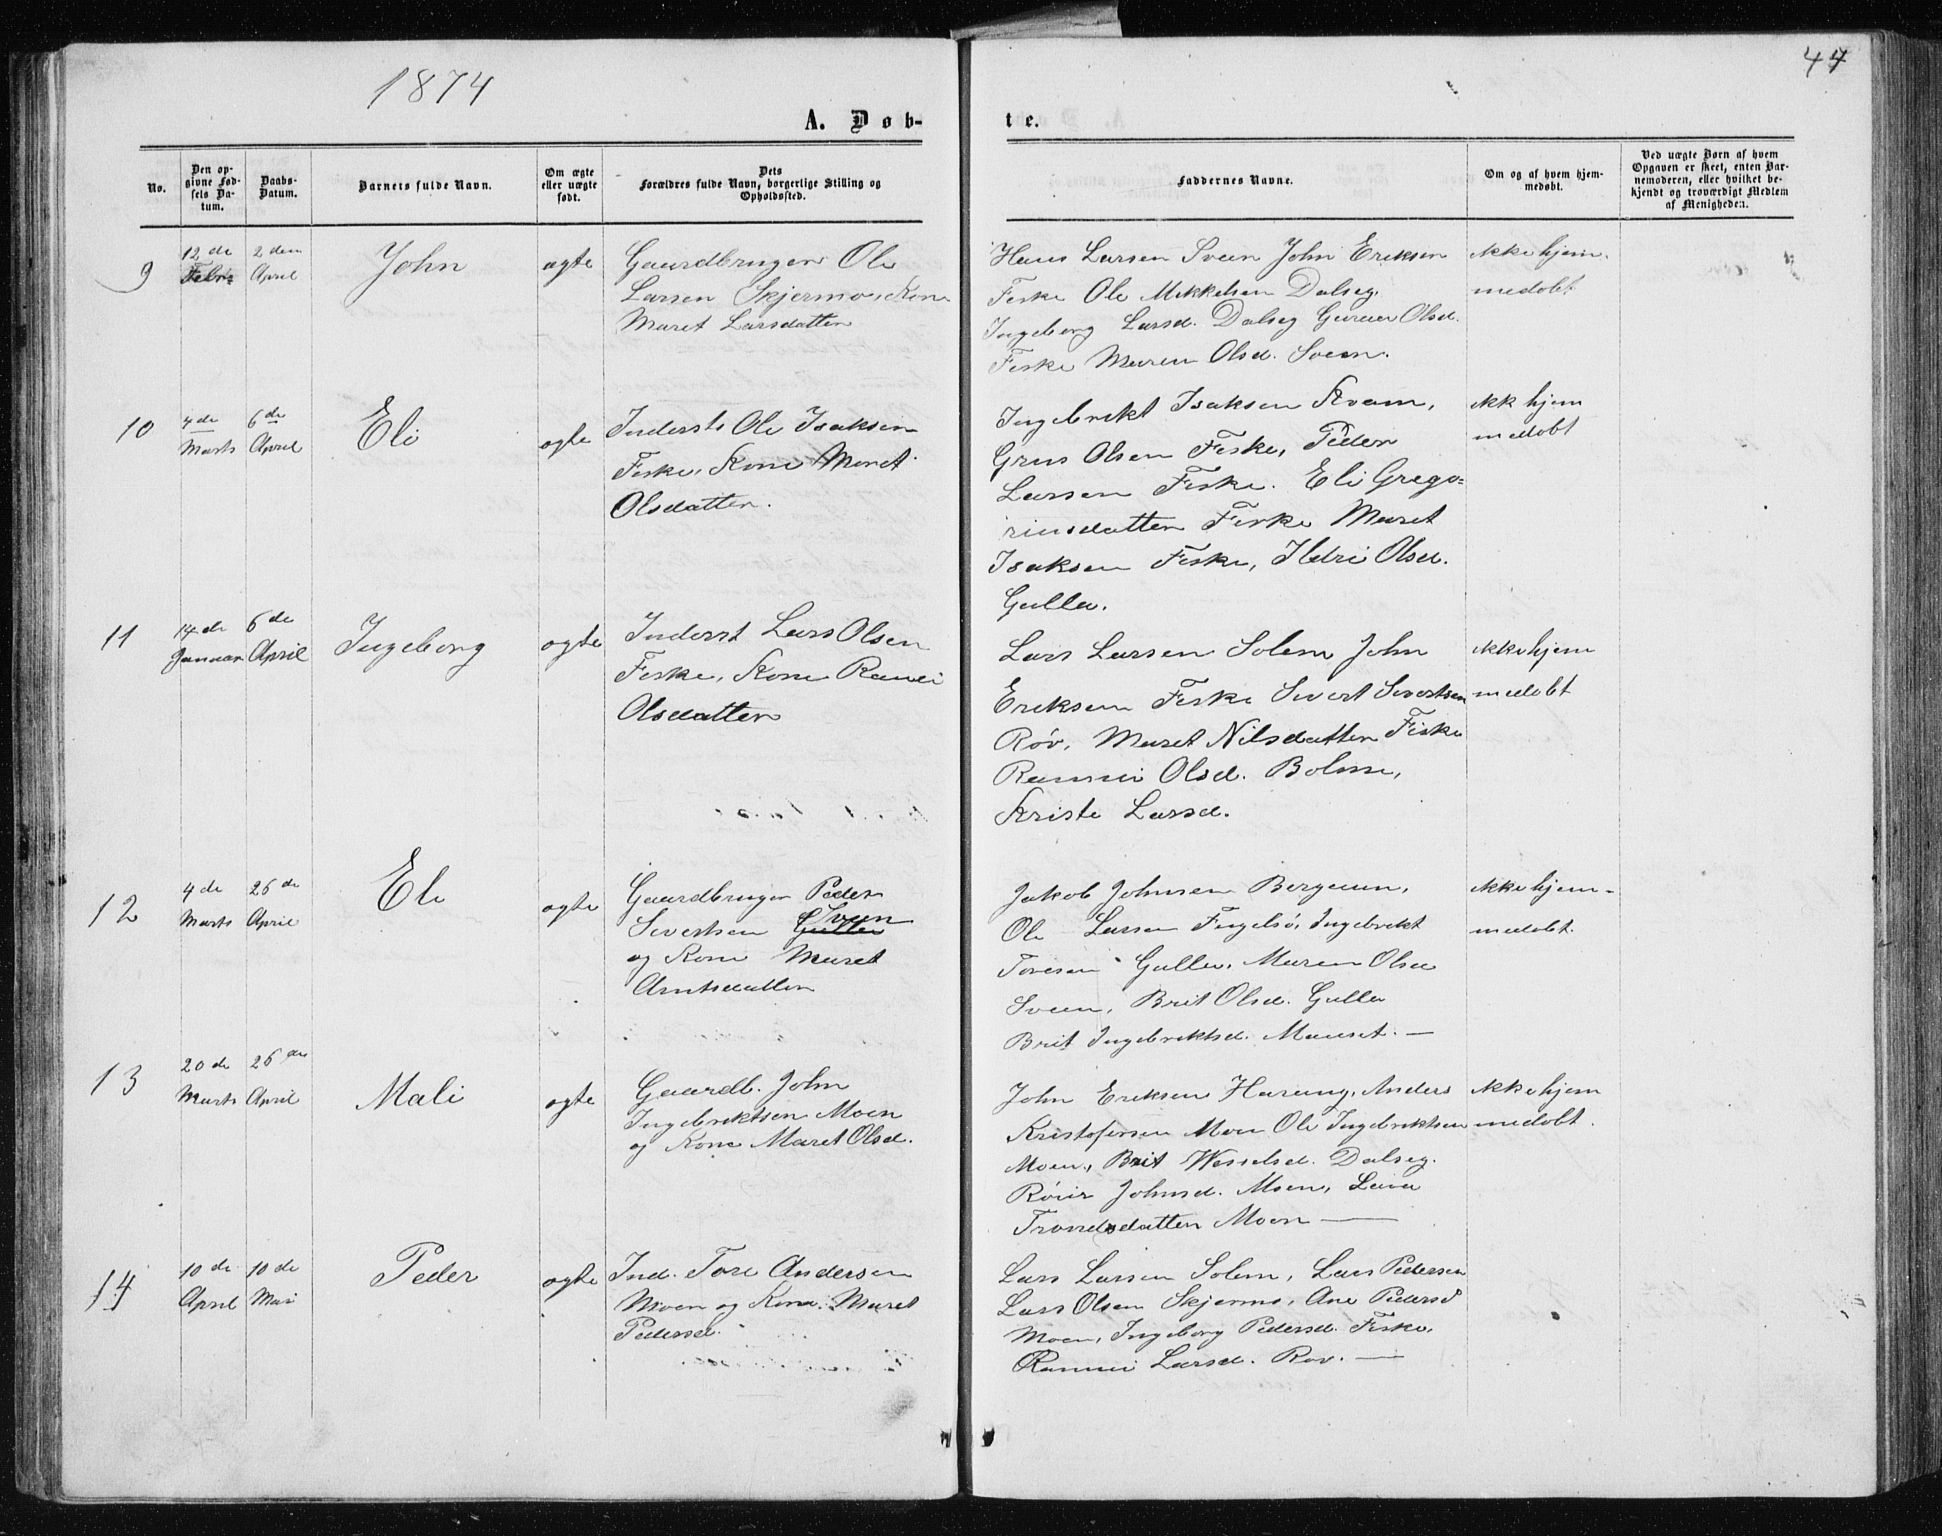 1874
47
A. Døb-
te.
No.
Den op-
givne Fød-
sels Da-
tum.
Daabs-
Datum.
Barnets fulde Navn.
Om ægte
eller uægte
født.
Dets
Forældres fulde Navn, borgerlige Stilling og
Opholdssted.
Faddernes Navne.
Om og af hvem hjem-
medøbt.
Ved uægte Børn af hvem
Opgaven er skeet, enten Bar-
nemoderen, eller hvilket be-
kjendt og troværdigt Medlem
af Menigheden.
9
12 de
Febr
2 den
April
John
ægte
Gaardbruger Ole
Larsen Skjermo, Kone
Maret Larsdatter
Hans Larsen Sveen John Eriksen
Feske Ole Mikkelsen Dalseg.
Ingeborg Larsd. Dalseg Guruer Olsd.
Feske Maren Olsd. Sveen.
ikke hjem-
medøbt
10
4 de
Marts
6 de
April
Eli
ægte
Inderst Ole Isaksen
Feske, Kone Maret
Olsdatter.
Ingebrikt Isaksen Kvam,
Grus Olsen Feske, Peder
Larsen Feske. Eli Grego=
riusdatter Feske Maret
Isaksen Feske, Ildri Olsd.
Gulla.
ikk hjem
medøbt
11
14 de
Januar
6 de
April
Ingeborg
ægte
Inderst Lars Olsen
Feske, Kone Ranei
Olsdatter
Lars Larsen Solem John
Eriksen Feske Sivert Sivertsen
Røv, Maret Nilsdatter Fiske
Rannei Olsd. Bolme,
Kriste Larsd.
ikke hjem
medøbt
12
4 de
Marts
26 de
April
Eli
ægte
Gaardbruger Peder
Sveen
Sivertsen Gulla
og Kone Maret
Arntsdatter
Jakob Johnsen Bergeum,
Ole Larsen Fugelsø, Ingebrikt
Toresen Gulla, Maren Olsd
Sveen, Brit Olsd. Gulla
Brit Ingebriktsd. Mauset. —
ikke hjem-
medøbt.
13
20 de
Marts
26 de
April
Mali
ægte
Gaardb. John
Ingebriktsen Moen
og Kone Maret Olsd.
John Eriksen Harang, Anders
Kristofersen Moen Ole Ingebriktsen
Moen, Brit Wesselsd. Dalseg.
Johnsd. Moen, Lava
Trondsdatter Moen —
ikke hjem
medøbt.
14
10 de
April
10 de
Mai
Peder
ægte
Ind. Tore Andersen
Moen og Kone Maret
Pedersd.
Lars Larsen Solem, Lars Pedersen
Lars Olsen Skjermo, Ane Pedersd
Moen, Ingeborg Pedersd. Feske,
Rannei Larsd. Røv. —